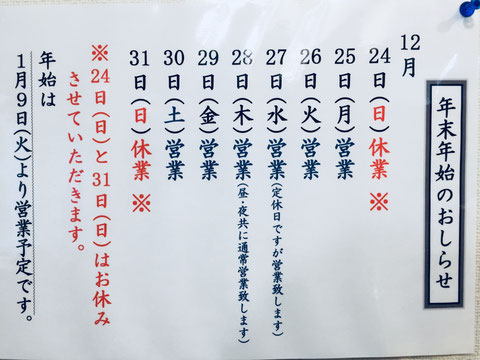 年末年始のおしらせ
12月
24日(日)休業 ※
25日(月)営業
26日(火)営業
27日(水)営業(定休日ですが営業致します)
28日(木)営業(昼・夜共に通常営業致します)
29日(金)営業
30日(土)営業
31日(日)休業 ※
※24日(日)と31日(日)はお休み
させていただきます。
年始は
1月9日(火)より営業予定です。